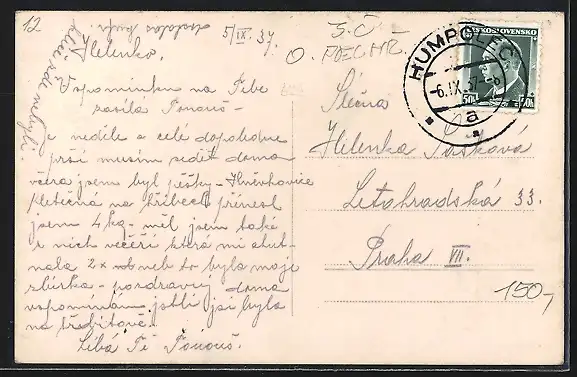 12
5/IX. 37.
Helenko,
Vzpomínku na Tebe
zasílá Tonouš –
Je neděle a celé dopoledne
prší musím sedět doma
včera jsem byl pěšky –
Kletečná na hřibech přinesl
jsem 4 kg – měl jsem také
z nich večeři která mi chut-
nala 2x neb to byla moje
sbírka – pozdravuj doma
vzpomínám jestli jsi byla
na
Líbá Tě Tonouš.
S.Č.
O.
HUMPOLEC
6.IX.37.-8
a
ČESKOSLOVENSKO
50h 50h
Slečna
Helenka Pašková
Letohradská 33.
Praha VII.
150,-